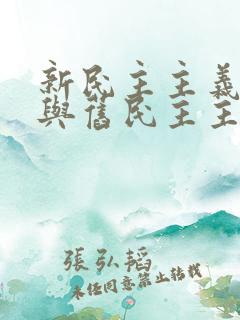 新民主主義
與舊民主主
張弘韜
未經同意禁止轉載